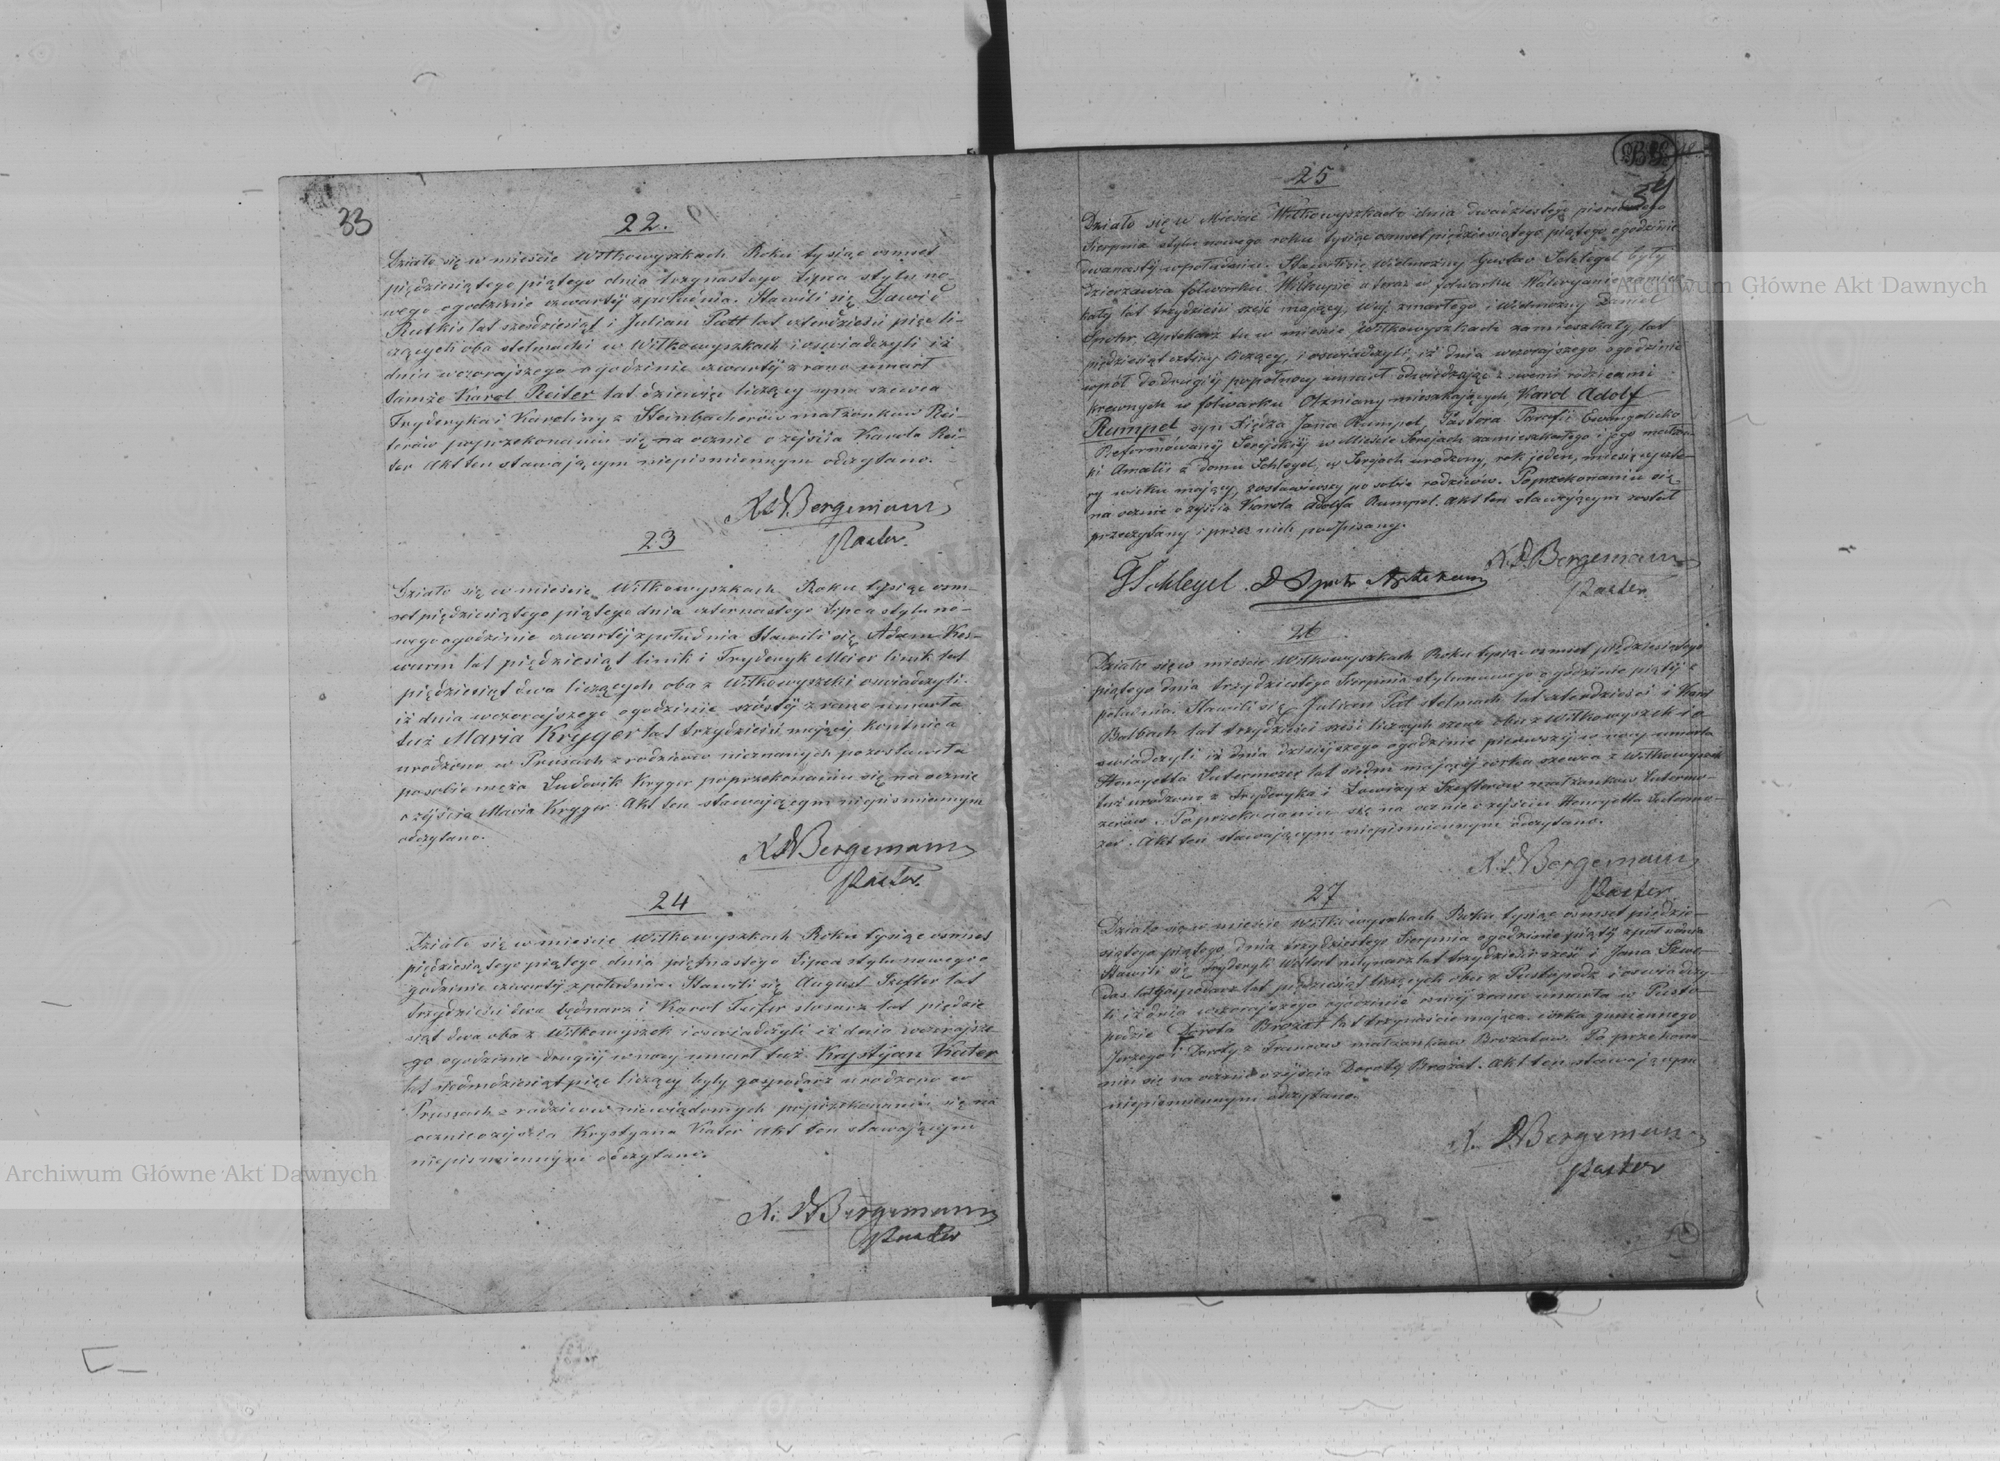 33
22.
Działo się w mieście Wiłkowyszkach Roku tysiąc osmset
piędziesiątego piątego dnia trzynastego Lipca stylu no-
wego ogodzinie czwartéj zpołudnia. Stawili się Dawid
lat sześdziesiąt i Julian Patt lat czterdzieści pięć li-
czących oba stelmachi w Wiłkowyszkach i oswiadczyli iż
dnia wczorajszego ogodzinie czwartéj zrana umarł
tamże Karol Reiter lat dziewięć liczący syn szewca
Fryderyka i Karoliny z Steinbacherów małżonków Rei-
terów poprzekonaniu się na ocznie o zejściu Karola Rei-
ter Akt ten stawającym niepismiennym odczytano.
Bergemann
Pastor.
23
Działo się w mieście Wiłkowyszkach Roku tysiąc osm-
set piędziesiątego piątego dnia czternastego Lipca stylu no-
wego ogodzinie czwartéj zpołudnia Stawili się Adam Kes-
wurm lat piędziesiąt linik i Fryderyk Meier linik lat
piędziesiąt dwa liczących oba z Wiłkowyszek i oswiadczyli.
iż dnia wczorajszego ogodzinie szóstéj zrana umarła
tuż Maria Kryger lat trzydzieści mającéj
urodzona w Prusach z rodziców nieznanych pozostawiła
posobie męża Ludwik Kryger poprzekonaniu się na ocznie
o zejściu Maria Kryger Akt ten stawającym niepismiennym
odczytano.
Bergemann
Pastor.
24
Działo się w mieście Wiłkowyszkach Roku tysiąc osmset
piędziesiątego piątego dnia piętnastego Lipca stylu nowego o
godzinie czwartéj zpołudnia. Stawili się August Szefler lat
trzydzieści dwa bednarz i Karol Feifer slosarz lat piędzie
siąt dwa oba z Wiłkowyszek i oswiadczyli iż dnia wczorajsze
go ogodzinie drugiéj w nocy umarł tuż Krystyan Kater
lat siedmdziesiąt pięć liczący były gospodarz urodzony w
Prusach z rodziców niewiadomych poprzekonaniu się na
ocznie o zejściu Krystyana Kater Akt ten stawającym
niepismiennym odczytano.
Bergemann
Pastor
34
25
Działo się w Mieście Wiłkowyszkach dnia dwudziestego pierwszego
Sierpnia stylu nowego roku tysiąc osmset piędziesiątego piątego ogodzinie
dwunastéj wpołudnie. Stawili się Wielmożny Gustaw Schlegel były
Dzierżawca folwarku Wiłkupie a teraz w folwarku
lat trzydzieści sześć mający, wuj zmarłego i Wielmożny Daniel
Aptekarz tu w mieście Wiłkowyszkach zamieszkały lat
piędziesiąt cztery liczący, i oswiadczyli, iż dnia wczorajszego ogodzinie
wpół do drugiéj popołnocy umarł odwiedzając z swemi rodzicami
krewnych w folwarku Ożniany mieszkających Karol Adolf
Rumpel syn Xiędza Jana Rumpel, Pastora Parafii Ewangelicko
Reformowanéj Serejskiéj w Mieście Serejach zamieszkałego i jego małżon-
ki Amalii z domu Schlegel w Serejach urodzony, rok jeden, miesięcy czte-
ry wieku mający, zostawiwszy po sobie rodziców. Poprzekonaniu się
na ocznie o zejściu Karola Adolfa Rumpel. Akt ten stawającym został
przeczytany i przez nich podpisany.
Bergemann
Pastor
G Schlegel.
26
Działo się w mieście Wiłkowyszkach Roku tysiąc osmset piędziesiątego
piątego dnia trzydziestego Sierpnia stylu nowego ogodzinie piątéj z
południa. Stawili się Julian Pat stelmach lat czterdzieści i Karol
Balbach lat trzydzieści sześć liczących szewc oba z Wiłkowyszek i o-
swiadczyli iż dnia dzisiejszego ogodzinie pierwszéj w nocy umarła
Henryetta lat siedm mającéj córka szewca z Wiłkowyszek
tuż urodzona z Fryderyka i Lowizy z Szeflerów małżonków
Poprzekonaniu się na ocznie o zejściu Henryetta
Akt ten stawającym niepismiennym odczytano.
Bergemann
Pastor
27
Działo się w mieście Wiłkowyszkach Roku tysiąc osmset piędzie-
siątego piątego dnia trzydziestego Sierpnia ogodzinie piątéj zpołudnia
Stawili się Fryderyk młynarz lat trzydzieści sześć i Jana
gospodarz lat piędziesiąt liczących oba z Pustopedz i oswiadczy-
li iż dnia wczorajszego ogodzinie osméj zrana umarła w Pusto-
pedzie Dorota Brozat lat trzynaście mająca córka gumiennego
Jerzego i Doroty z małżonków Brozatów. Po przekona-
niu się na ocznie o zejściu Doroty Brozat. Akt ten stawającym
niepismiennym odczytano.
Bergemann
Pastor
Archiwum Główne Akt Dawnych
Archiwum Główne Akt Dawnych